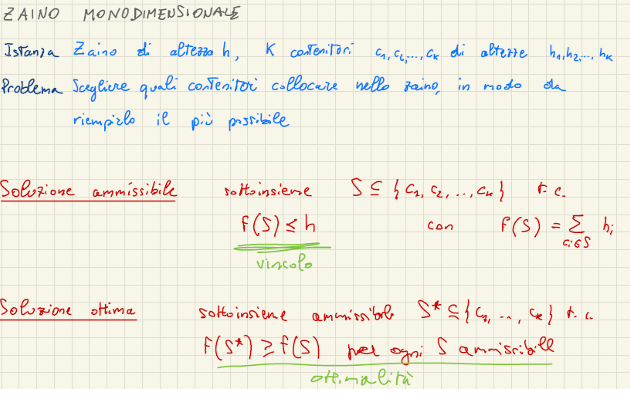 ZAINO MONODIMENSIONALE
Istanza Zaino di altezza h, K contenitori c₁, c₂, ..., cₖ di altezze h₁, h₂, ..., hₖ
Problema Scegliere quali contenitori collocare nello zaino, in modo da
riempirlo il più possibile
Soluzione ammissibile sottoinsieme S ⊆ {c₁, c₂, ..., cₖ} t.c.
f(S) ≤ h con f(S) = ∑ hᵢ
cᵢ∈S
vincolo
Soluzione ottima sottoinsieme ammissibile S* ⊆ {c₁, ..., cₖ} t.c.
f(S*) ≥ f(S) per ogni S ammissibile
ottimalità